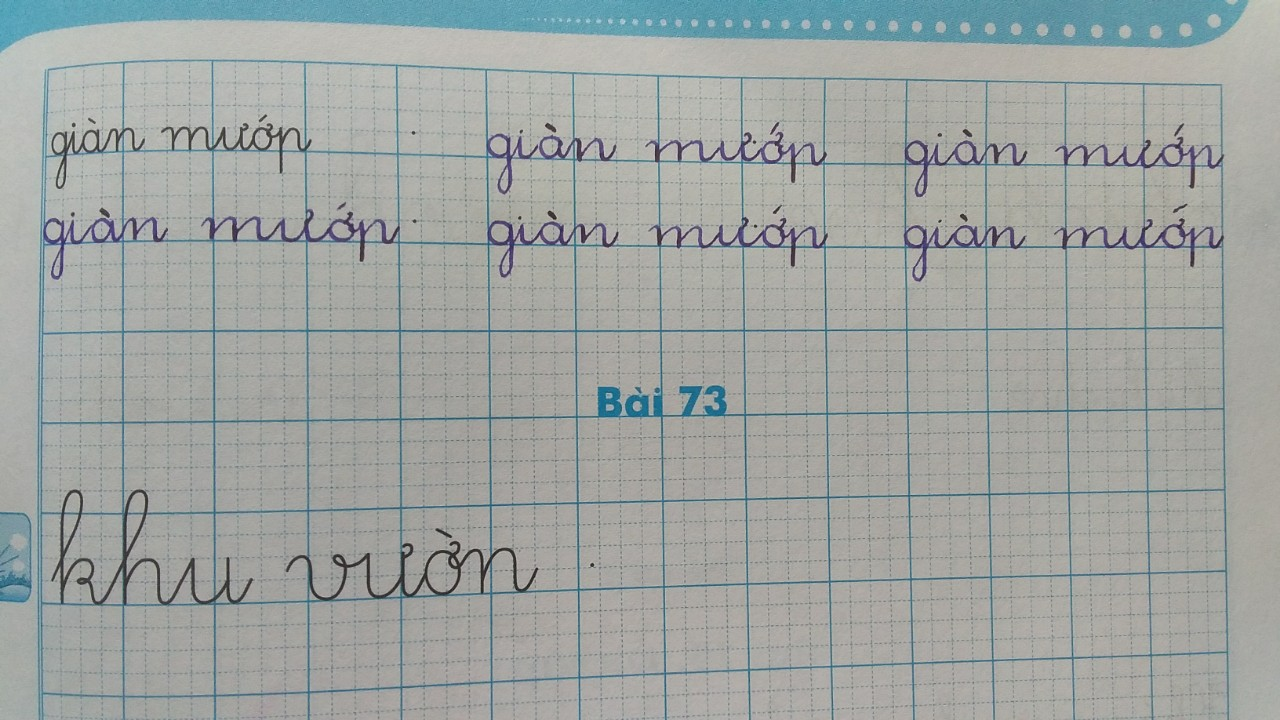 giàn mướp . giàn mướp giàn mướp
giàn mướp . giàn mướp giàn mướp
Bài 73
khu vườn .